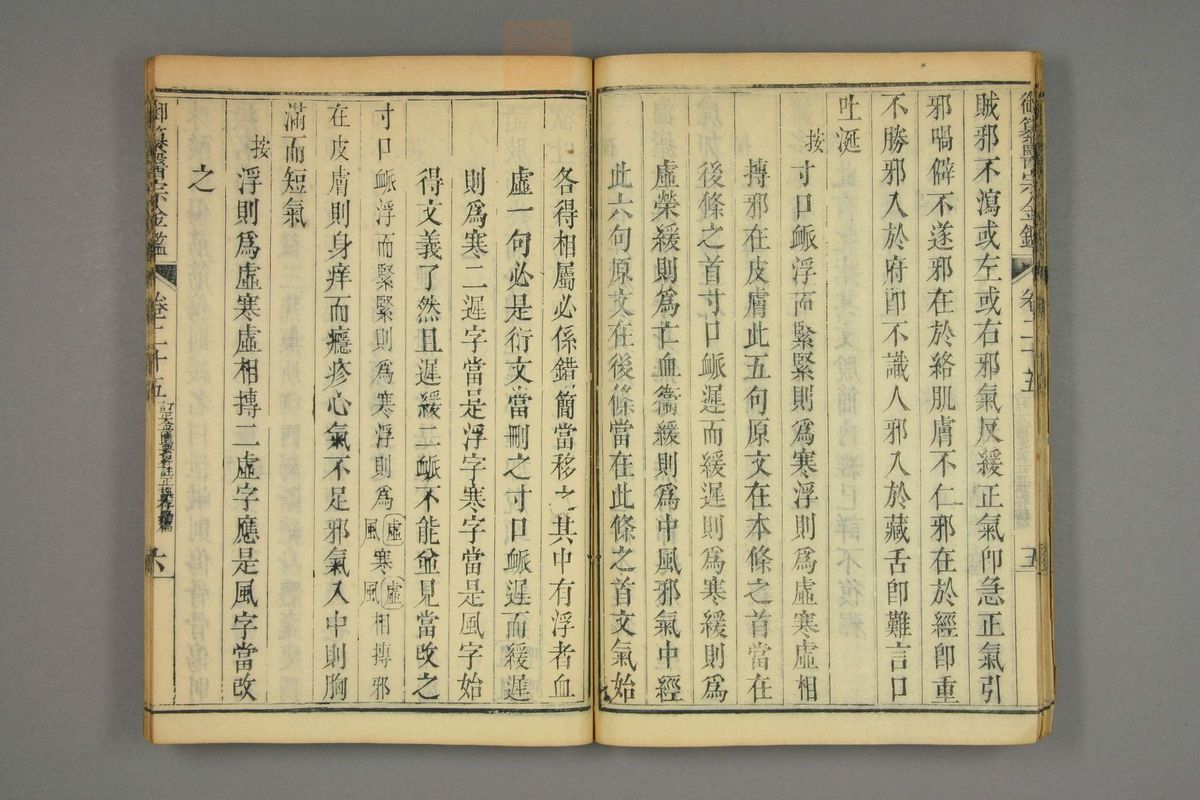 御纂醫宗金鑑 卷二十五 五
賊邪不瀉或左或右邪氣反緩正氣卽急正氣引
邪喎僻不遂邪在於絡肌膚不仁邪在於經卽重
不勝邪入於府卽不識人邪入於藏舌卽難言口
吐涎
按寸口脈浮而緊緊則爲寒浮則爲虛寒虛相
摶邪在皮膚此五句原文在本條之首當在
後條之首寸口脈遲而緩遲則爲寒緩則爲
虛榮緩則爲亡血衞緩則爲中風邪氣中經
此六句原文在後條當在此條之首文氣始
各得相屬必係錯簡當移之其中有浮者血
虛一句必是衍文當刪之寸口脈遲而緩遲
則爲寒二遲字當是浮字寒字當是風字始
得文義了然且遲緩二脈不能並見當改之
寸口脈浮而緊緊則爲寒浮則爲虛風寒虛風相摶邪
在皮膚則身痒而癮疹心氣不足邪氣入中則胸
滿而短氣
按浮則爲虛寒虛相摶二虛字應是風字當改
之
御纂醫宗金鑑 卷二十五 六